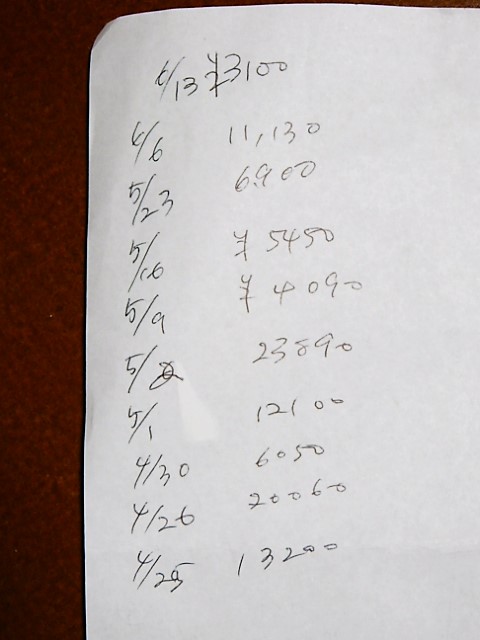 6/13 ¥3100
6/6 11,130
5/23 6900
5/16 ¥5450
5/9 ¥4090
5/2 23890
5/1 12100
4/30 6050
4/26 20060
4/25 13200